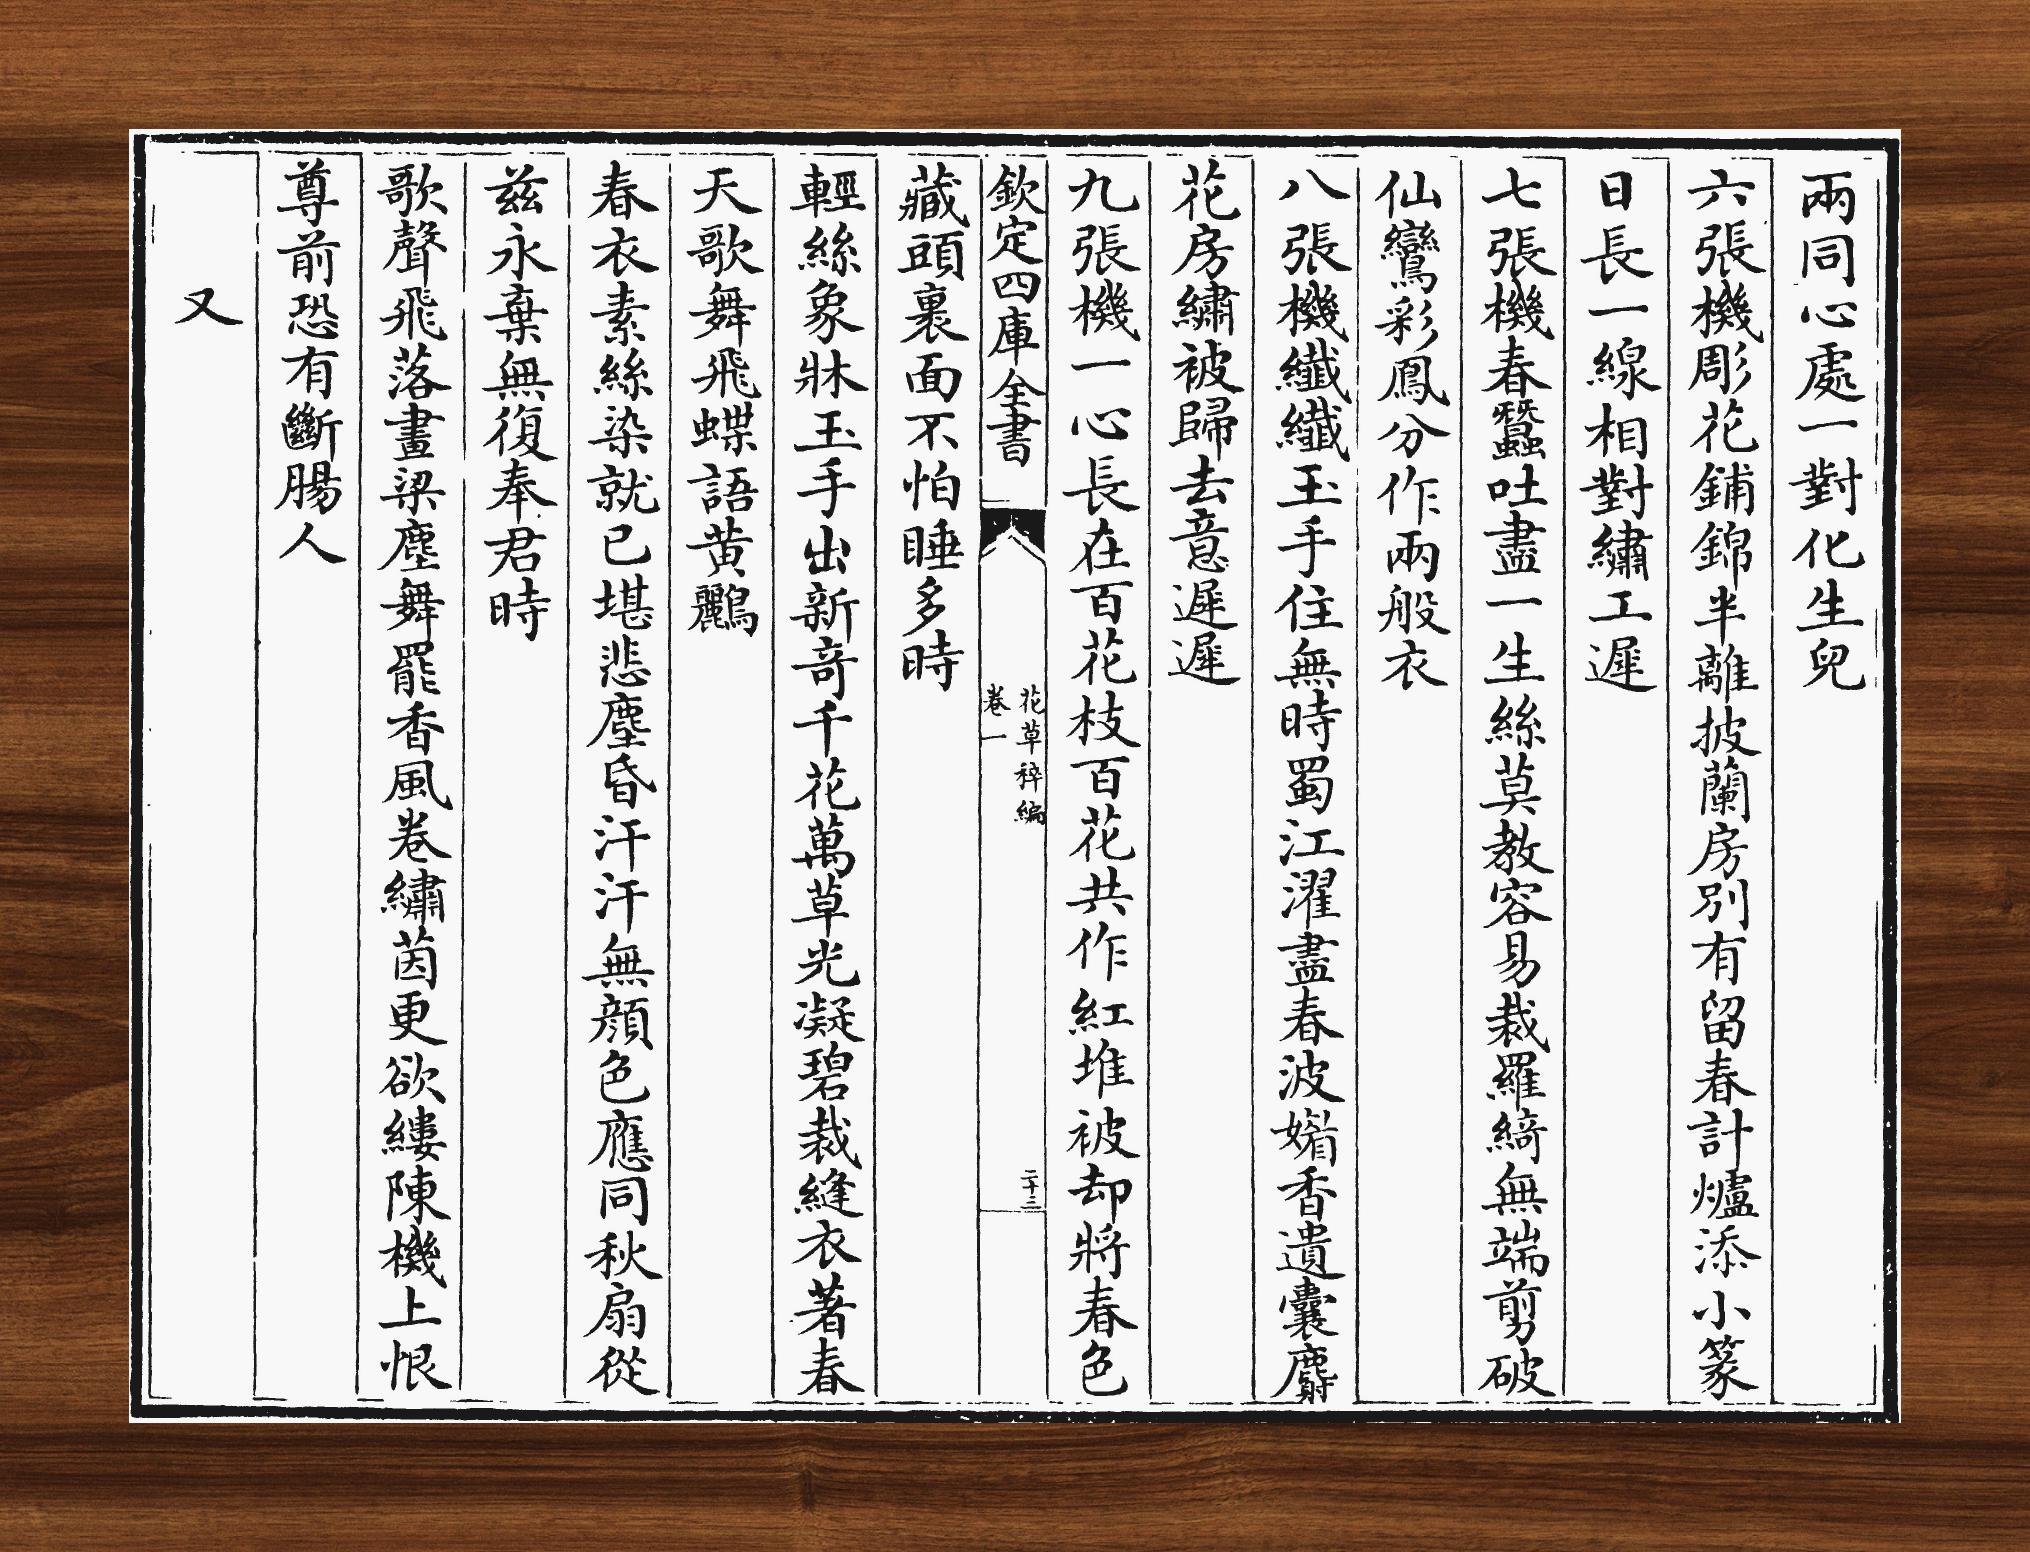 兩同心處一對化生兒
六張機彫花鋪錦半離披蘭房別有留春計爐添小篆
日長一線相對繡工遲
七張機春蠶吐盡一生絲莫教容易裁羅綺無端剪破
仙鸞彩鳳分作兩般衣
八張機纖纖玉手住無時蜀江濯盡春波媚香遺囊麝
花房繡被歸去意遲遲
九張機一心長在百花枝百花共作紅堆被却將春色
欽定四庫全書
花草稡編
卷一
二十三
藏頭裏面不怕睡多時
輕絲象牀玉手出新竒千花萬草光凝碧裁縫衣著春
天歌舞飛蝶語黄鸝
春衣素絲染就已堪悲塵昏汗汗無顔色應同秋扇從
兹永棄無復奉君時
歌聲飛落畫梁塵舞罷香風卷繡茵更欲縷陳機上恨
尊前恐有斷腸人
又